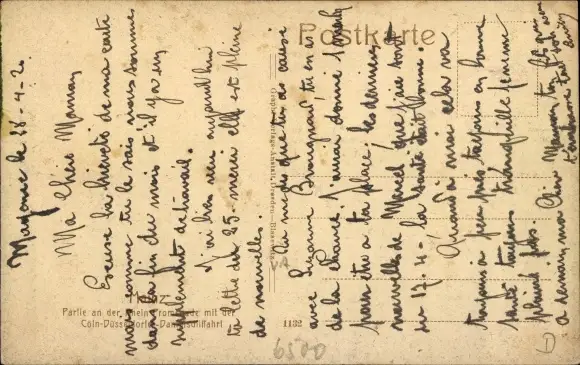 Postkarte
Mayence le 28-4-20
Ma Chère Maman
Excuse la brièveté de ma carte
mais comme tu le sais nous sommes
dans la fin du mois et il y a un
supplément de travail.
J'ai bien reçu aujourd'hui
ta lettre du 25 merci elle est pleine
de nouvelles.
Tu me dis que tu as causé
avec Suzanne tu en as
de la chance. J'aurai donné 1 mark
pour être à ta place; les dernières
nouvelles de Marcel que j'ai sont
du 17-4- la santé était bonne.
Quand à moi cela va
toujours à peu près toujours en bonne
santé toujours tranquille
pleine
à demain, ma Chère Maman, ton fils qui
t'embrasse
Mainz
Partie an der Rheinpromenade mit der
Cöln-Düsseldorfer-Dampfschiffahrt
1132
6500
D